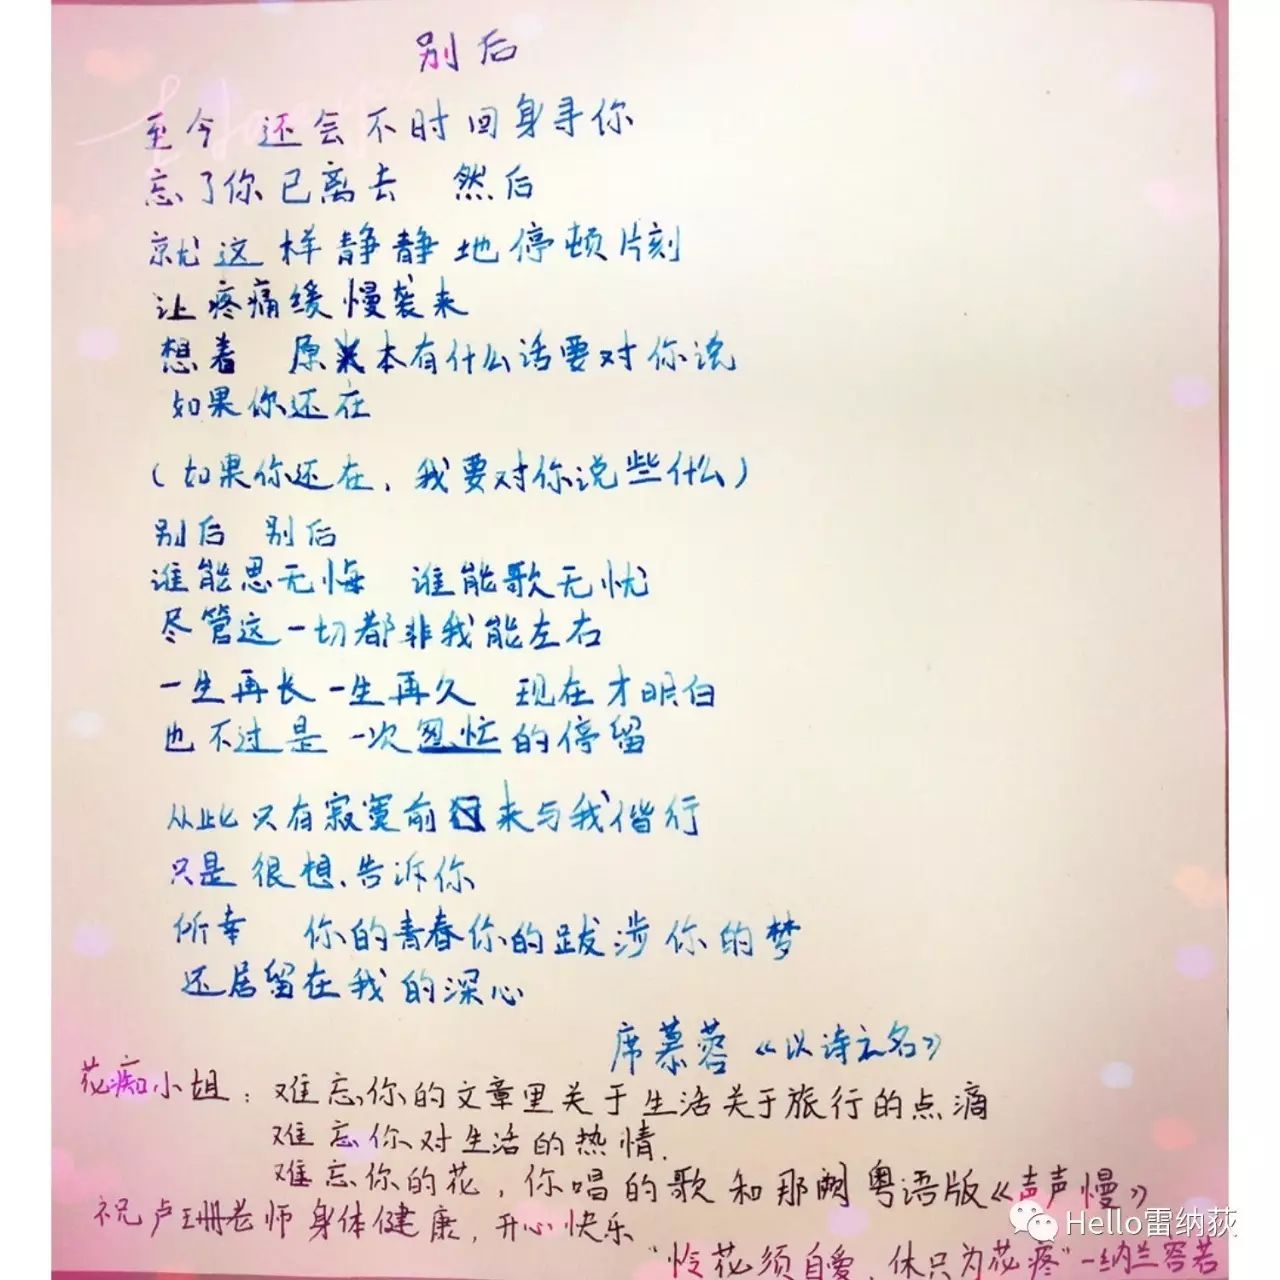 别后
至今 还会不时回身寻你
忘了你已离去 然后
就这样静静地停顿片刻
让疼痛缓慢袭来
想着 原本有什么话要对你说
如果你还在
(如果你还在,我要对你说些什么)
别后 别后
谁能思无悔 谁能歌无忧
尽管这一切都非我能左右
一生再长一生再久 现在才明白
也不过是一次匆忙的停留
从此只有寂寞前来与我偕行
只是很想告诉你
所幸 你的青春你的跋涉你的梦
还居留在我的深心
席慕蓉《以诗之名》
花痴小姐:难忘你的文章里关于生活关于旅行的点滴
难忘你对生活的热情.
难忘你的花,你唱的歌和那阙粤语版《声声慢》
祝卢珊老师身体健康,开心快乐
Hello雷纳荻
"怜花须自爱,休只为花疼"—纳兰容若